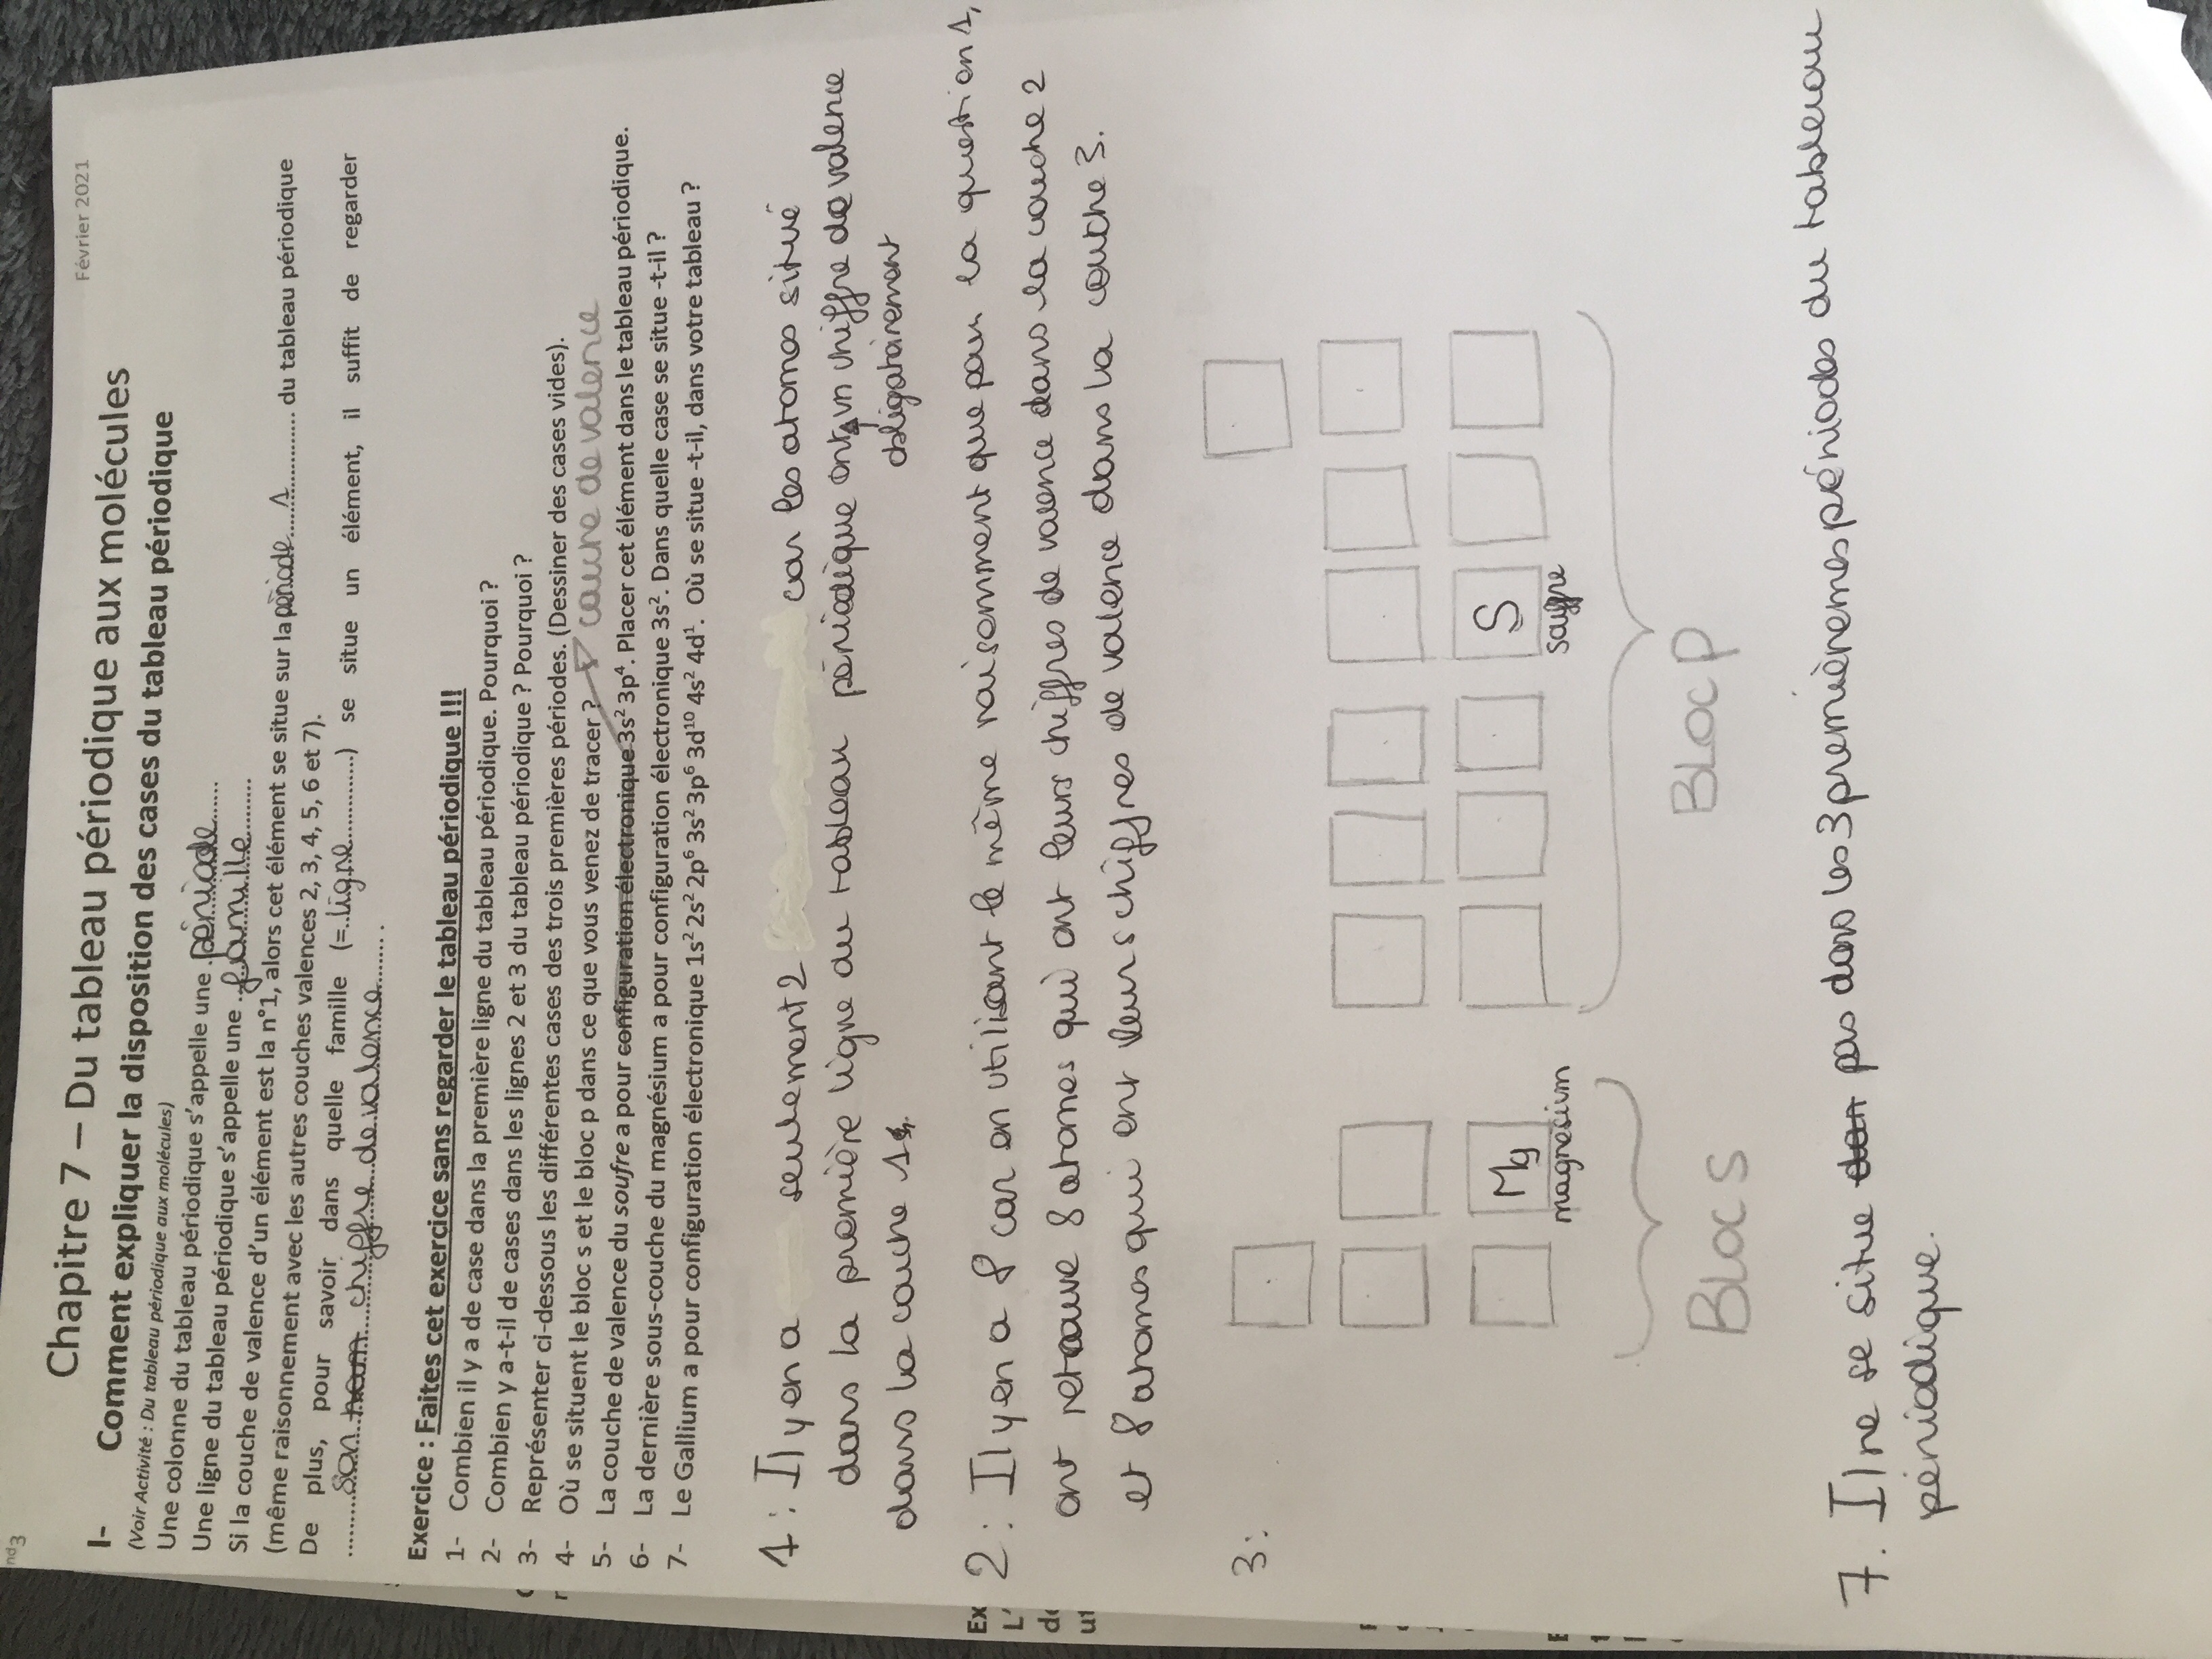 nd3
Février 2021
Chapitre 7 – Du tableau périodique aux molécules
I- Comment expliquer la disposition des cases du tableau périodique
(Voir Activité : Du tableau périodique aux molécules)
Une colonne du tableau périodique s'appelle une période
Une ligne du tableau périodique s'appelle une famille
Si la couche de valence d'un élément est la n°1, alors cet élément se situe sur la période 1 du tableau périodique
(même raisonnement avec les autres couches valences 2, 3, 4, 5, 6 et 7).
De plus, pour savoir dans quelle famille (= ligne ) se situe un élément, il suffit de regarder
son nom chiffre de valence .
Exercice : Faites cet exercice sans regarder le tableau périodique !!!
1- Combien il y a de case dans la première ligne du tableau périodique. Pourquoi ?
2- Combien y a-t-il de cases dans les lignes 2 et 3 du tableau périodique ? Pourquoi ?
3- Représenter ci-dessous les différentes cases des trois premières périodes. (Dessiner des cases vides).
4- Où se situent le bloc s et le bloc p dans ce que vous venez de tracer ? couche de valence
5- La couche de valence du soufre a pour configuration électronique 3s² 3p⁴. Placer cet élément dans le tableau périodique.
6- La dernière sous-couche du magnésium a pour configuration électronique 3s². Dans quelle case se situe -t-il ?
7- Le Gallium a pour configuration électronique 1s² 2s² 2p⁶ 3s² 3p⁶ 3d¹⁰ 4s² 4d¹. Où se situe -t-il, dans votre tableau ?
1 : Il y en a seulement 2 car les atomes situé
dans la première ligne du tableau périodique ont un chiffre de valence
obligatoirement
dans la couche 1
2 : Il y en a 8 car en utilisant le même raisomment que pour la question 1,
ont retrouve 8 atomes qui ont leurs chiffres de valence dans la couche 2
et 8 atomes qui ont leurs chiffres de valence dans la couche 3.
3 :
Mg
S
magnésium
souffre
BLOC S
BLOC P
7. Il ne se situe dan pas dans les 3 premièremes périodes du tableau
périodique.
Ex
L'
de
ut